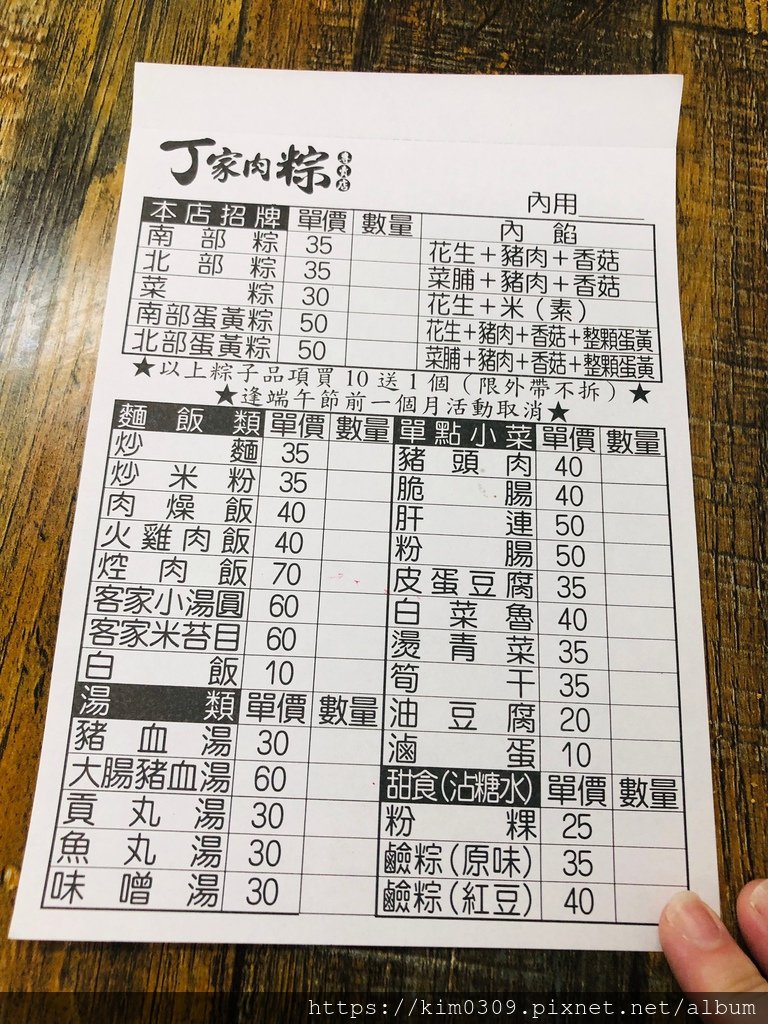 丁家肉粽 專賣店
內用
本店招牌 單價 數量 內餡
南部粽 35 花生＋豬肉＋香菇
北部粽 35 菜脯＋豬肉＋香菇
菜粽 30 花生＋米（素）
南部蛋黃粽 50 花生＋豬肉＋香菇＋整顆蛋黃
北部蛋黃粽 50 菜脯＋豬肉＋香菇＋整顆蛋黃
★以上粽子品項買10送1個（限外帶不拆）★
★逢端午節前一個月活動取消★
麵飯類 單價 數量
炒麵 35
炒米粉 35
肉燥飯 40
火雞肉飯 40
焢肉飯 70
客家小湯圓 60
客家米苔目 60
白飯 10
湯類 單價 數量
豬血湯 30
大腸豬血湯 60
貢丸湯 30
魚丸湯 30
味噌湯 30
單點小菜 單價 數量
豬頭肉 40
脆腸 40
肝連 50
粉腸 50
皮蛋豆腐 35
白菜魯 40
燙青菜 35
筍干 35
油豆腐 20
滷蛋 10
甜食(沾糖水) 單價 數量
粉粿 25
鹼粽(原味) 35
鹼粽(紅豆) 40
https://kim0309.pixnet.net/album